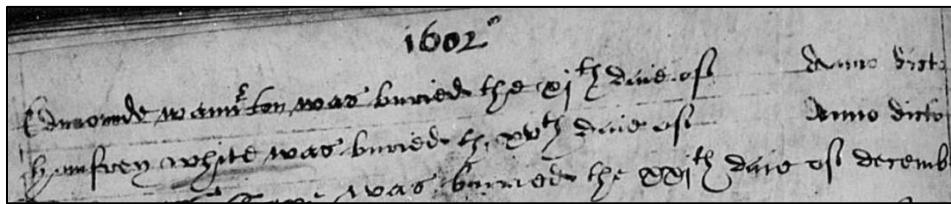 1602
Edmonde wamton was buried the xjth daie of Anno dicto
humfrey white was buried th xvth daie of Anno dicto
was buried the xxjth daie of decemb